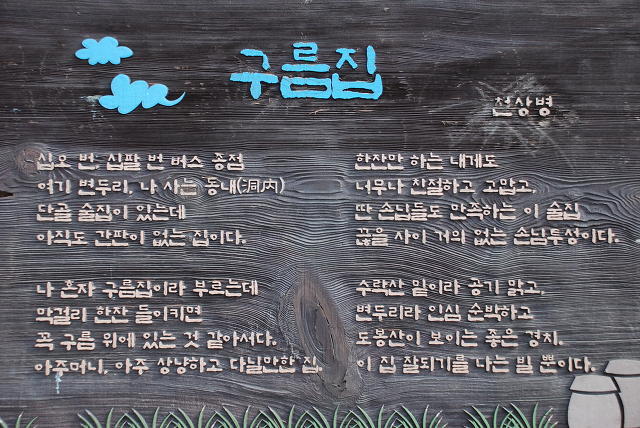 구름집
천상병
십오 번, 십팔 번 버스 종점
여기 변두리, 나 사는 동내(洞內)
단골 술집이 있는데
아직도 간판이 없는 집이다.
나 혼자 구름집이라 부르는데
막걸리 한잔 들이키면
꼭 구름 위에 있는 것 같아서다.
아주머니, 아주 상냥하고 다닐만한 집.
한잔만 하는 내게도
너무나 친절하고 고맙고,
딴 손님들도 만족하는 이 술집
끊을 사이 거의 없는 손님투성이다.
수락산 밑이라 공기 맑고,
변두리라 인심 순박하고
도봉산이 보이는 좋은 경치.
이 집 잘되기를 나는 빌 뿐이다.